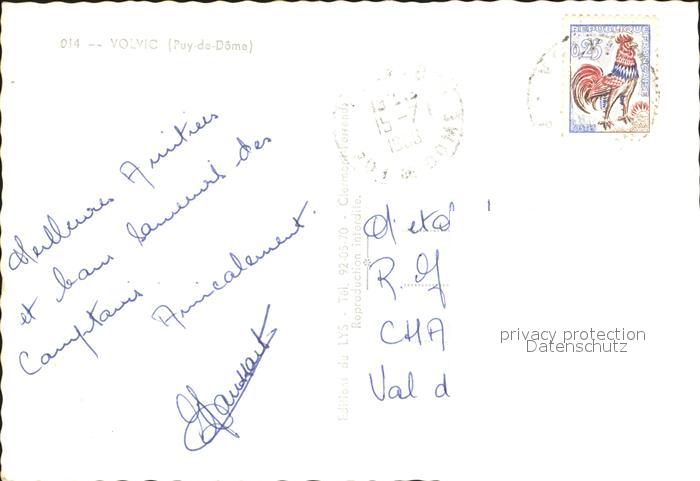 014 -- VOLVIC (Puy-de-Dôme)
REPUBLIQUE FRANÇAISE
0,25
POSTES
15-7
PUY DE DOME
Meilleures Amitiés
et bons souvenirs des
Amicalement.
Editions du LYS - Tél. 92-05-70 - Clermont-Ferrand
Reproduction interdite.
R.
CHA
Val d
privacy protection
Datenschutz